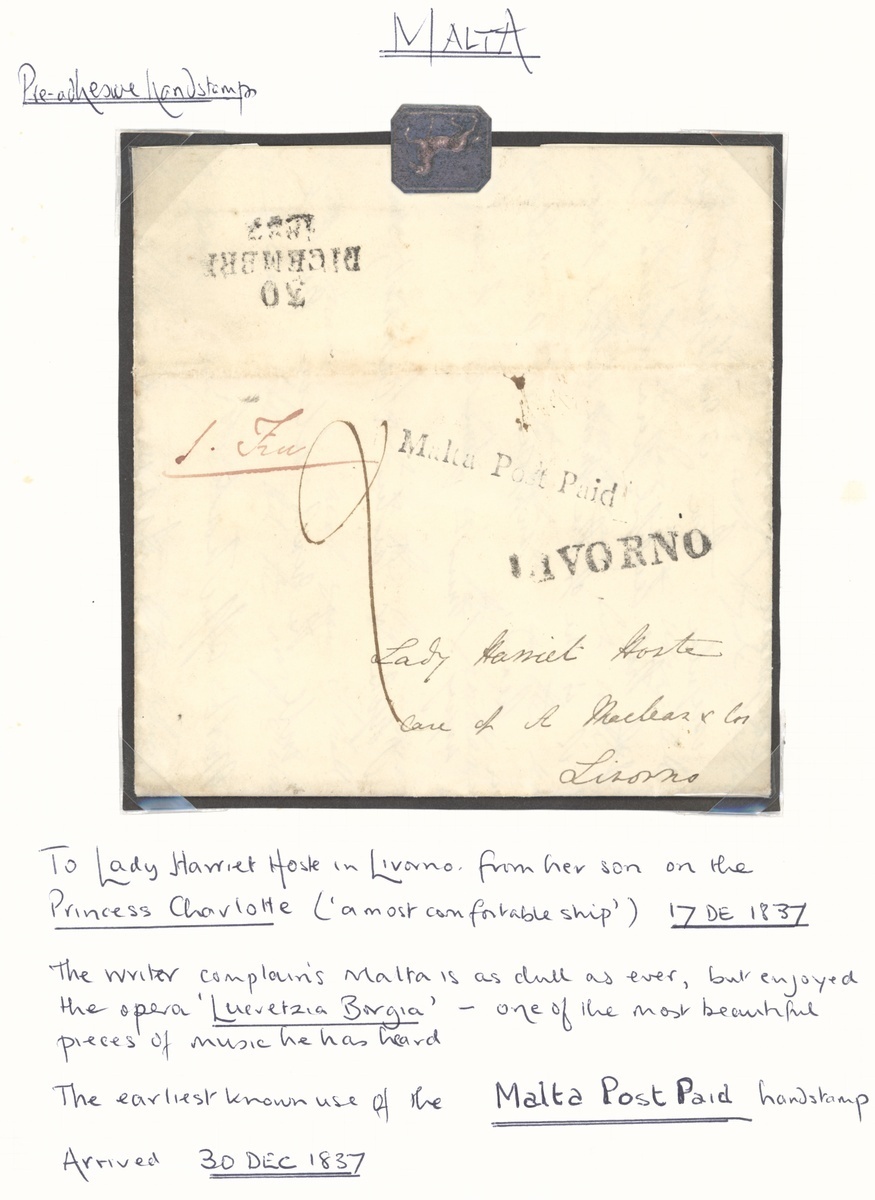 MALTA
Pre-adhesive handstamps
30
DICEMBRE
1. Fra
Malta Post Paid
LIVORNO
Lady Harriet Hoste
care of A Maclean & Cos
Livorno
To Lady Harriet Hoste in Livorno. from her son on the
Princess Charlotte ('a most comfortable ship') 17 DE 1837
The writer complain's Malta is as dull as ever, but enjoyed
the opera 'Lucretzia Borgia' - one of the most beautiful
pieces of music he has heard
The earliest known use of the Malta Post Paid handstamp
Arrived 30 DEC 1837